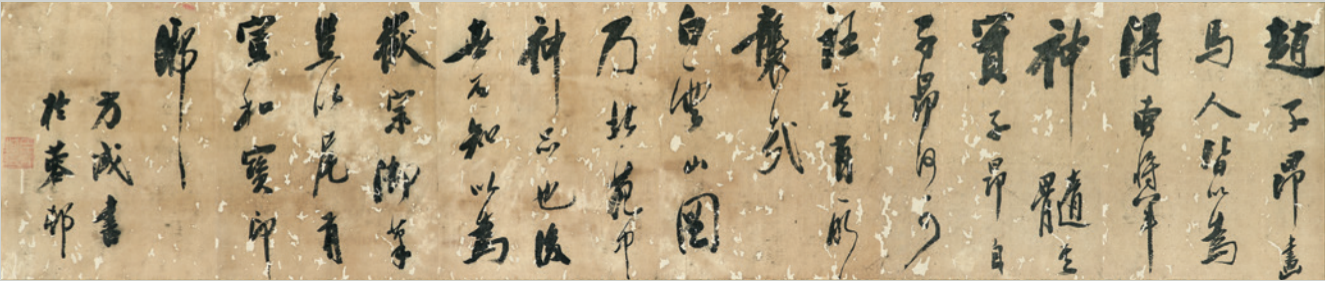 趙子昂畫
馬人皆以為
得曹將軍
神髓其
實子昂自
子昂何可
註其有所
襲武
白雲山圖
乃北苑中
神品也後
世不知以為
徽宗御筆
豈以尾有
宣和寶印
耶
方咸書
於